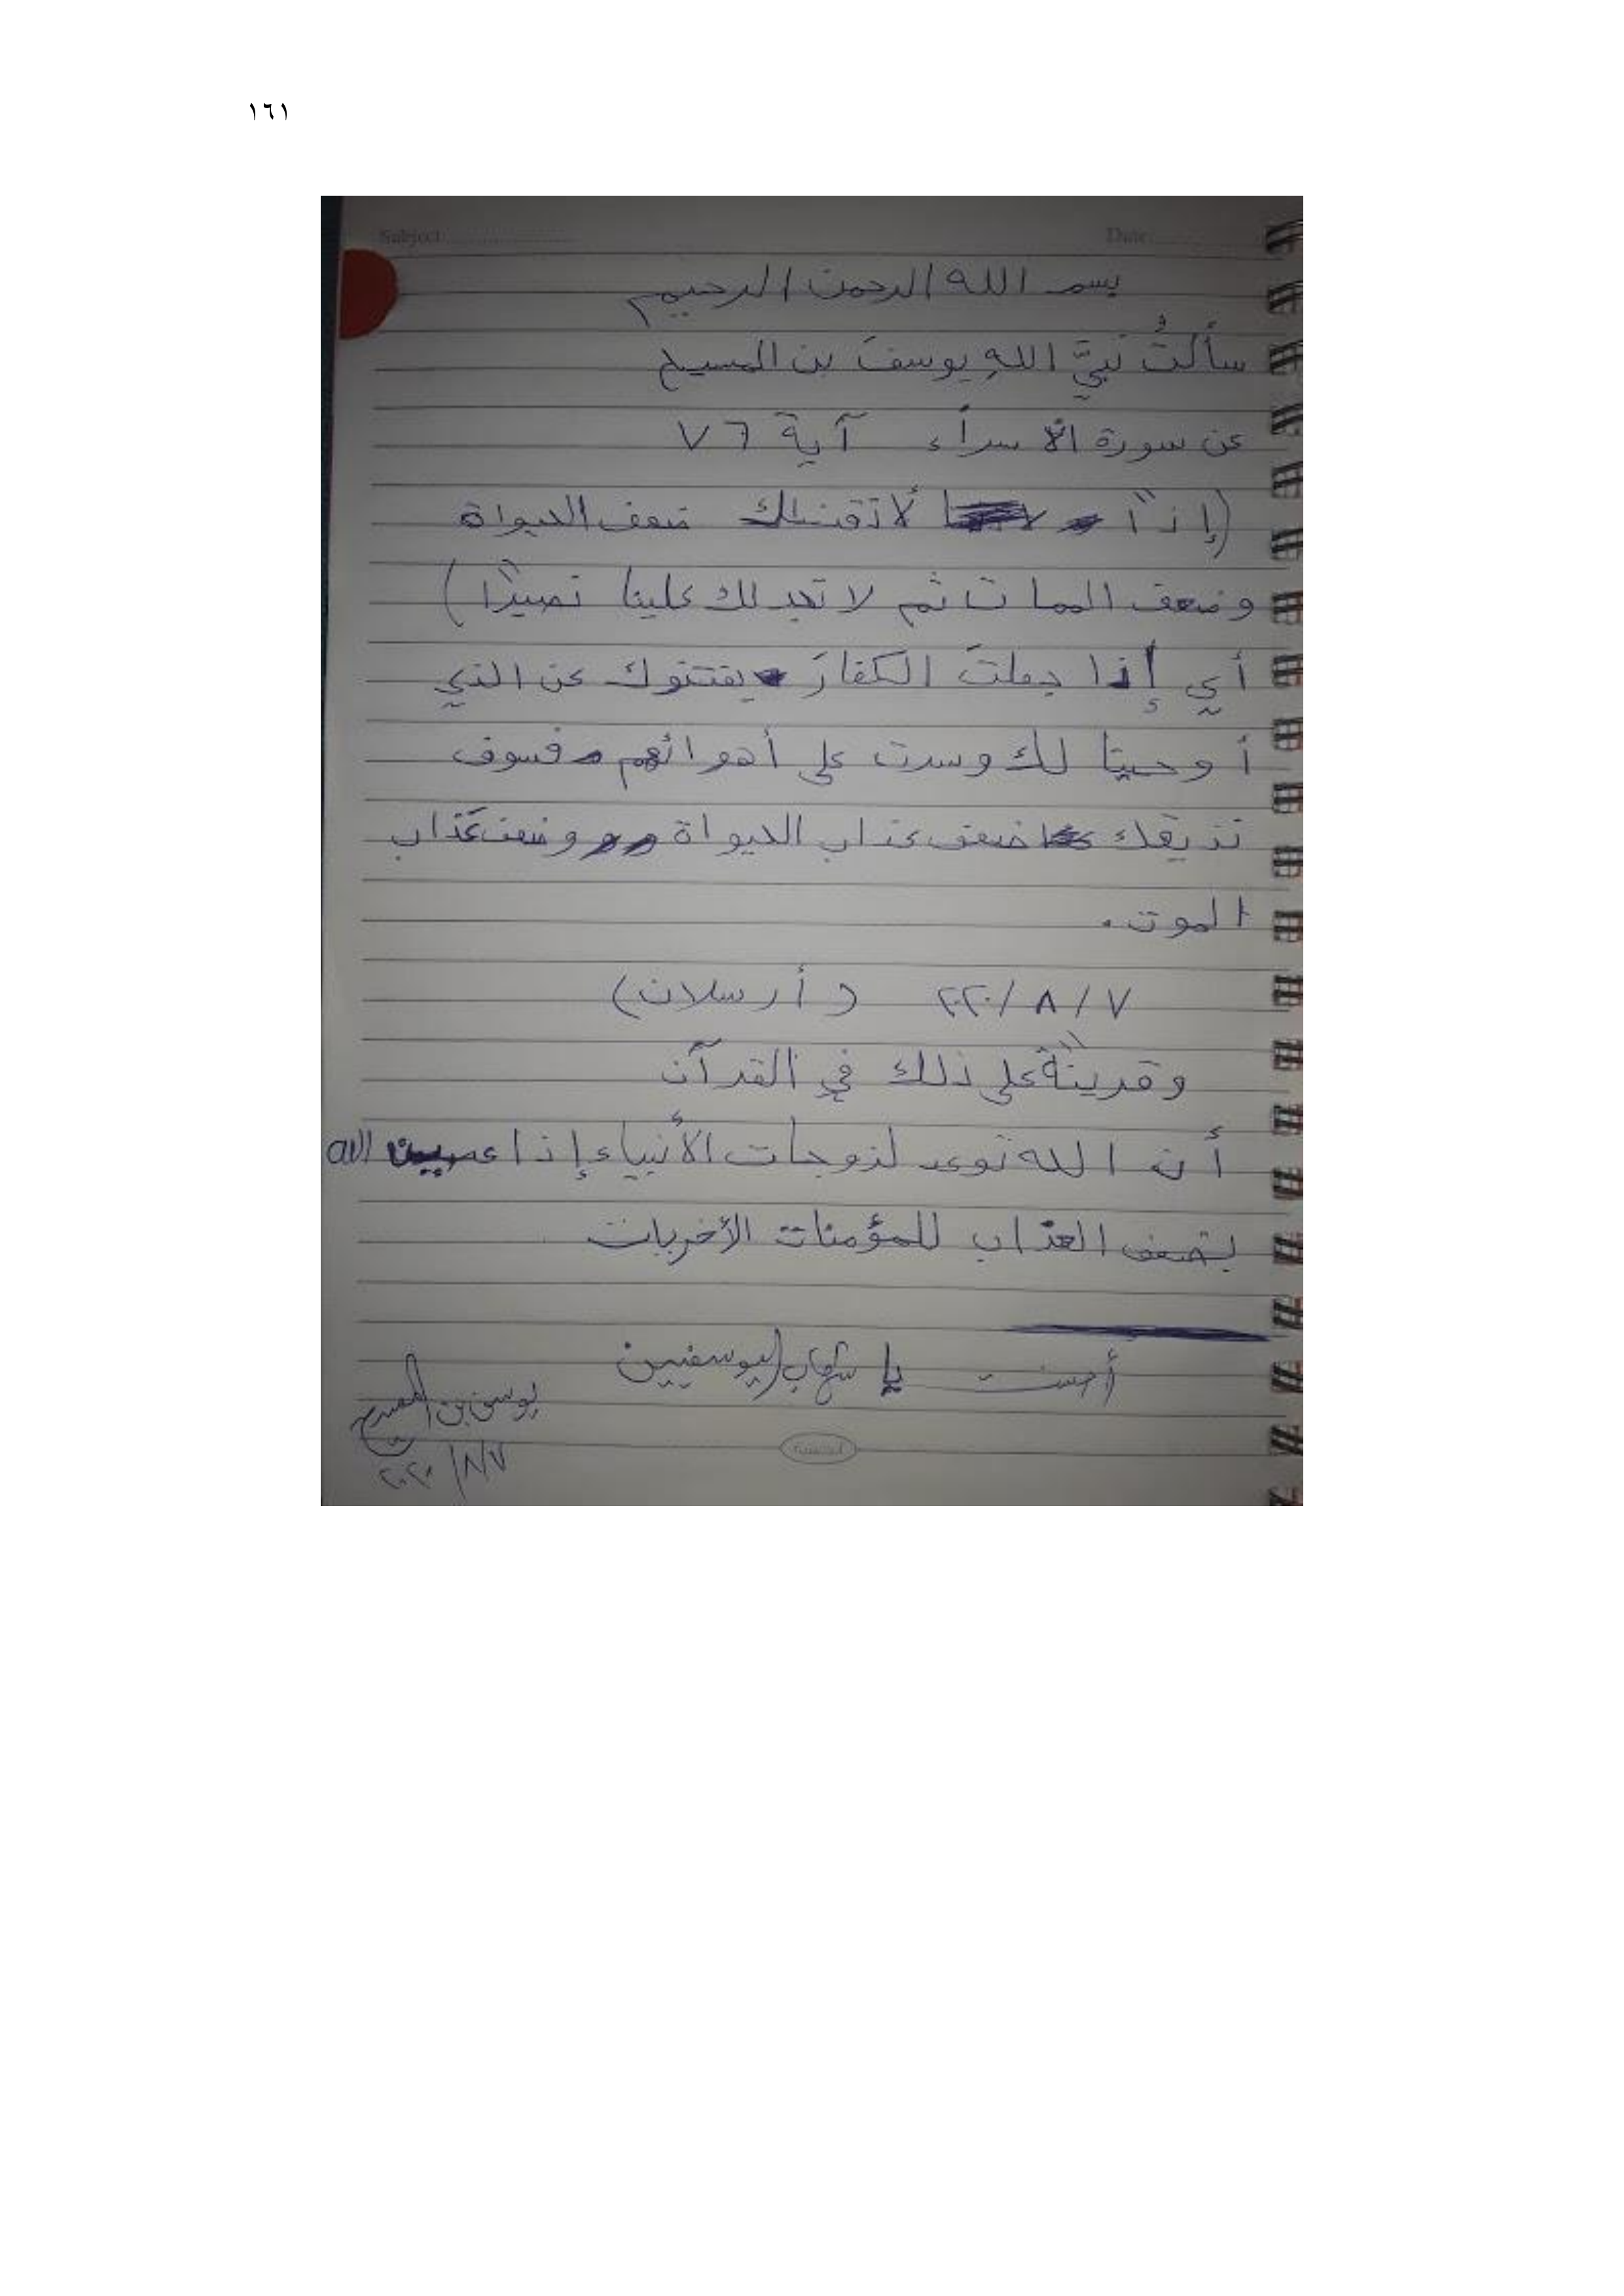 ١٦١
Subject: Date:
بسم الله الرحمن الرحيم
سألتُ نبيَّ اللهِ يوسفَ بن المسيح
عن سورة الاسراء آية ٧٦
(إذاً لأذقنـٰك ضعف الحيواة
وضعف الممات ثم لا تجد لك علينا نصيرًا)
أي إذا جعلتَ الكفارَ يفتنوك عن الذي
أوحينا لك وسرت على أهوائهم فسوف
نذيقك ضعف عذاب الحيواة وضعف عذاب
الموت.
٧/٨/٢٠٢٠ (أرسلان)
وقرينةً على ذلك في القرآن
أن الله توعد لزوجات الأنبياء إذا عصين الله
بضعف العذاب للمؤمنات الأخريات
أحسنت يا شهاب اليوسفيين
يوسف بن المسيح
٧/٨/٢٠٢٠